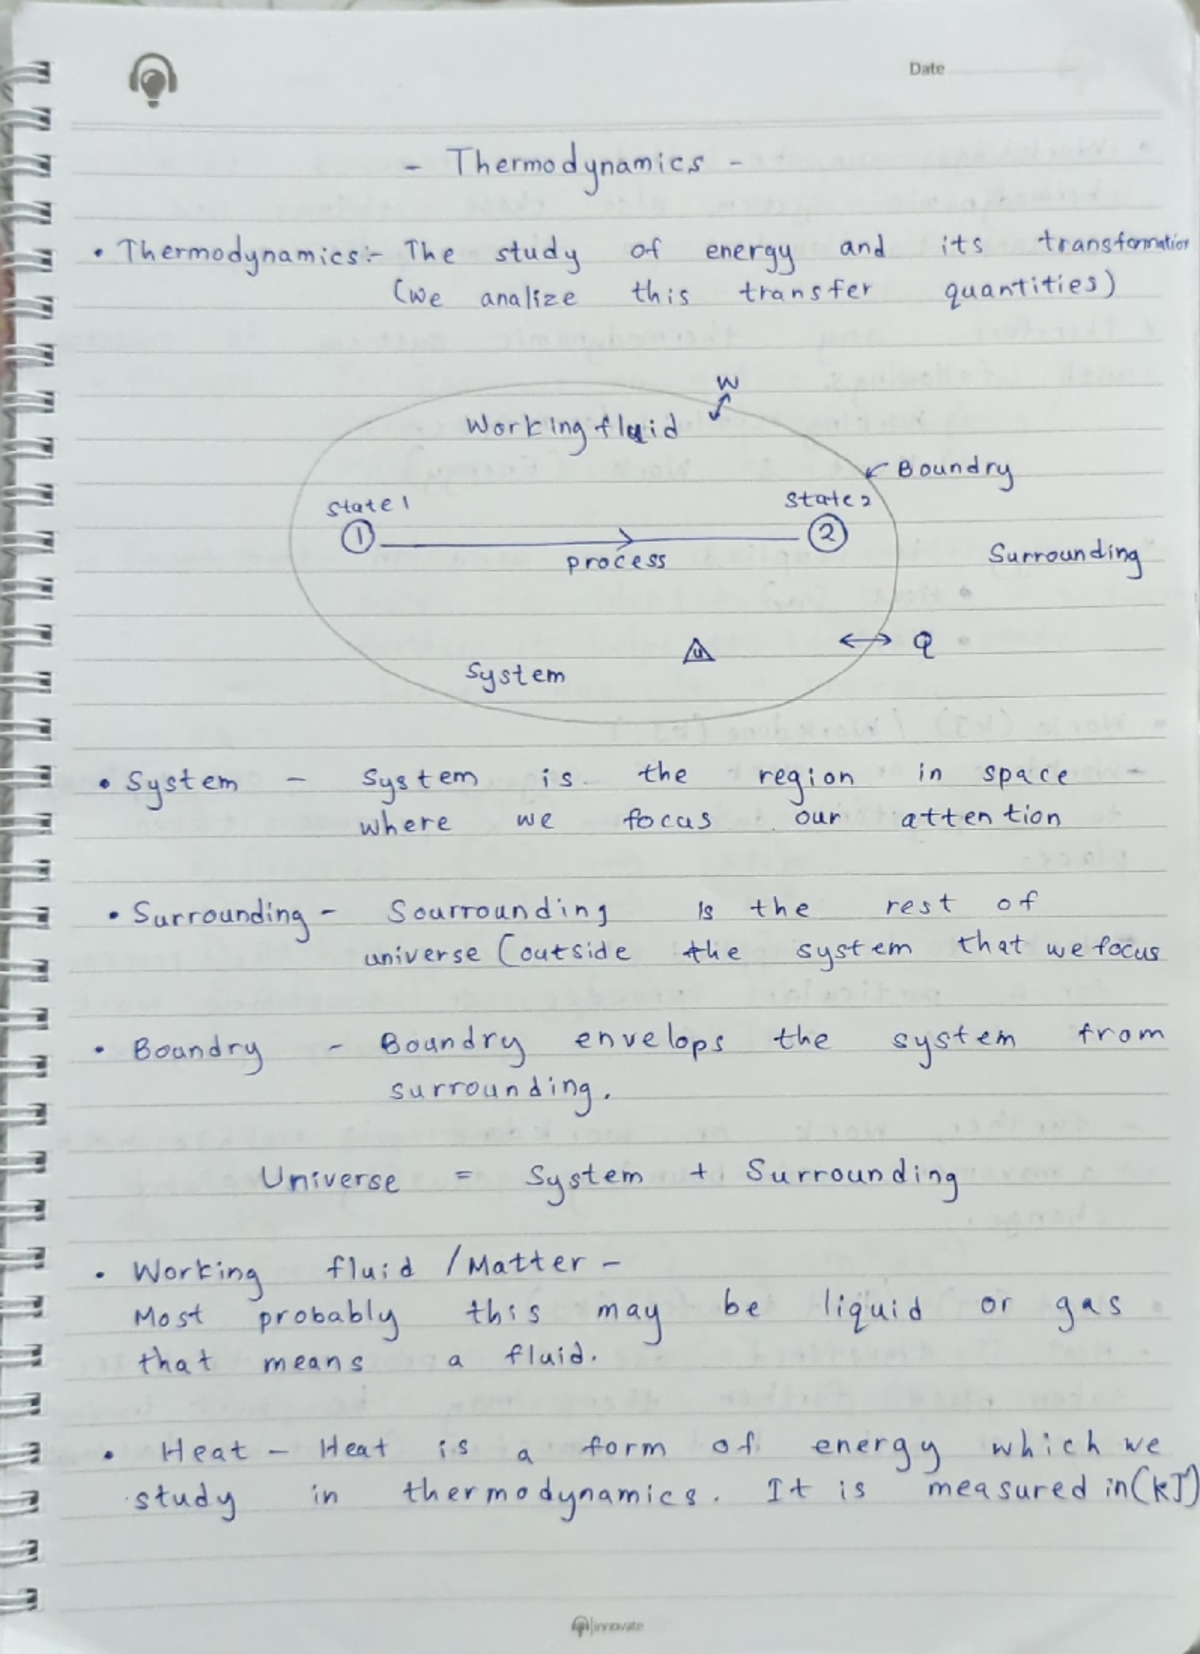 Date
- Thermodynamics -
• Thermodynamics:- The study of energy and its transformation
(we analize this transfer quantities)
W
Working fluid
Boundry
State 1
State 2
1
2
process
Surrounding
Q
u
System
• System - System is the region in space
where we focus our attention
• Surrounding - Sourrounding is the rest of
universe (outside the system that we focus
• Boundry - Boundry envelops the system from
surrounding.
Universe = System + Surrounding
• Working fluid / Matter -
Most probably this may be liquid or gas
that means a fluid.
• Heat - Heat is a form of energy which we
study in thermodynamics. It is measured in (kJ)
innovate